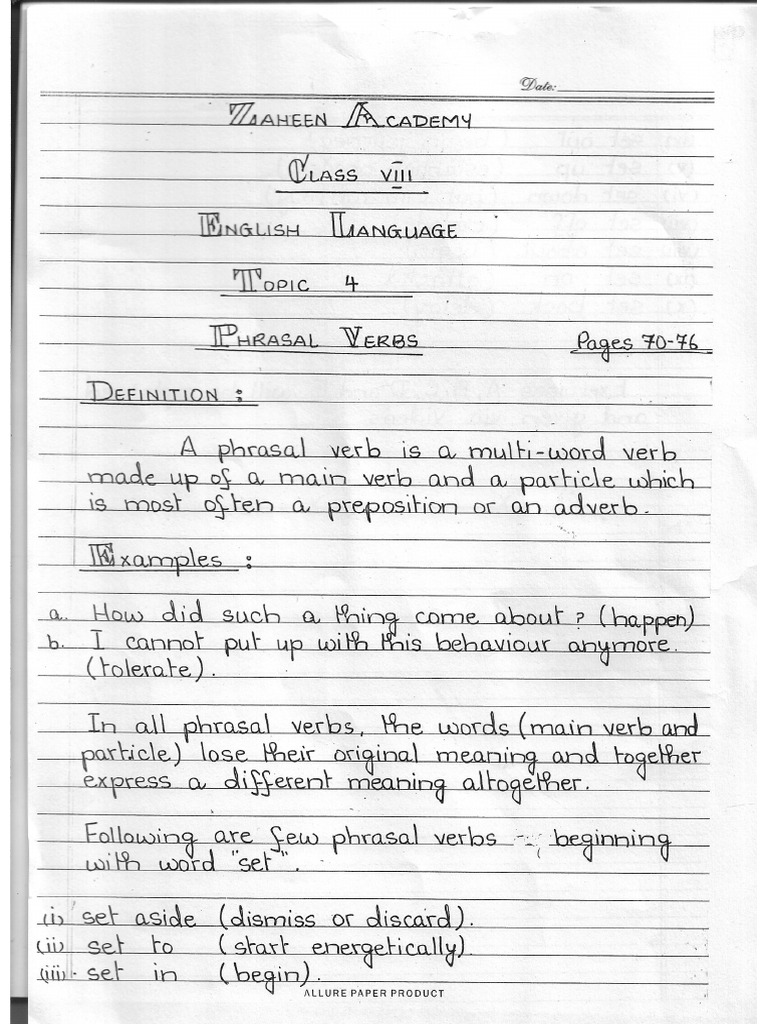 Date:
ZAHEEN ACADEMY
CLASS VIII
ENGLISH LANGUAGE
TOPIC 4
PHRASAL VERBS Pages 70-76
DEFINITION :
A phrasal verb is a multi-word verb
made up of a main verb and a particle which
is most often a preposition or an adverb.
Examples :
a. How did such a thing come about? (happen)
b. I cannot put up with this behaviour anymore.
(tolerate).
In all phrasal verbs, the words (main verb and
particle) lose their original meaning and together
express a different meaning altogether.
Following are few phrasal verbs beginning
with word "set".
(i) set aside (dismiss or discard).
(ii) set to (start energetically)
(iii) set in (begin).
ALLURE PAPER PRODUCT